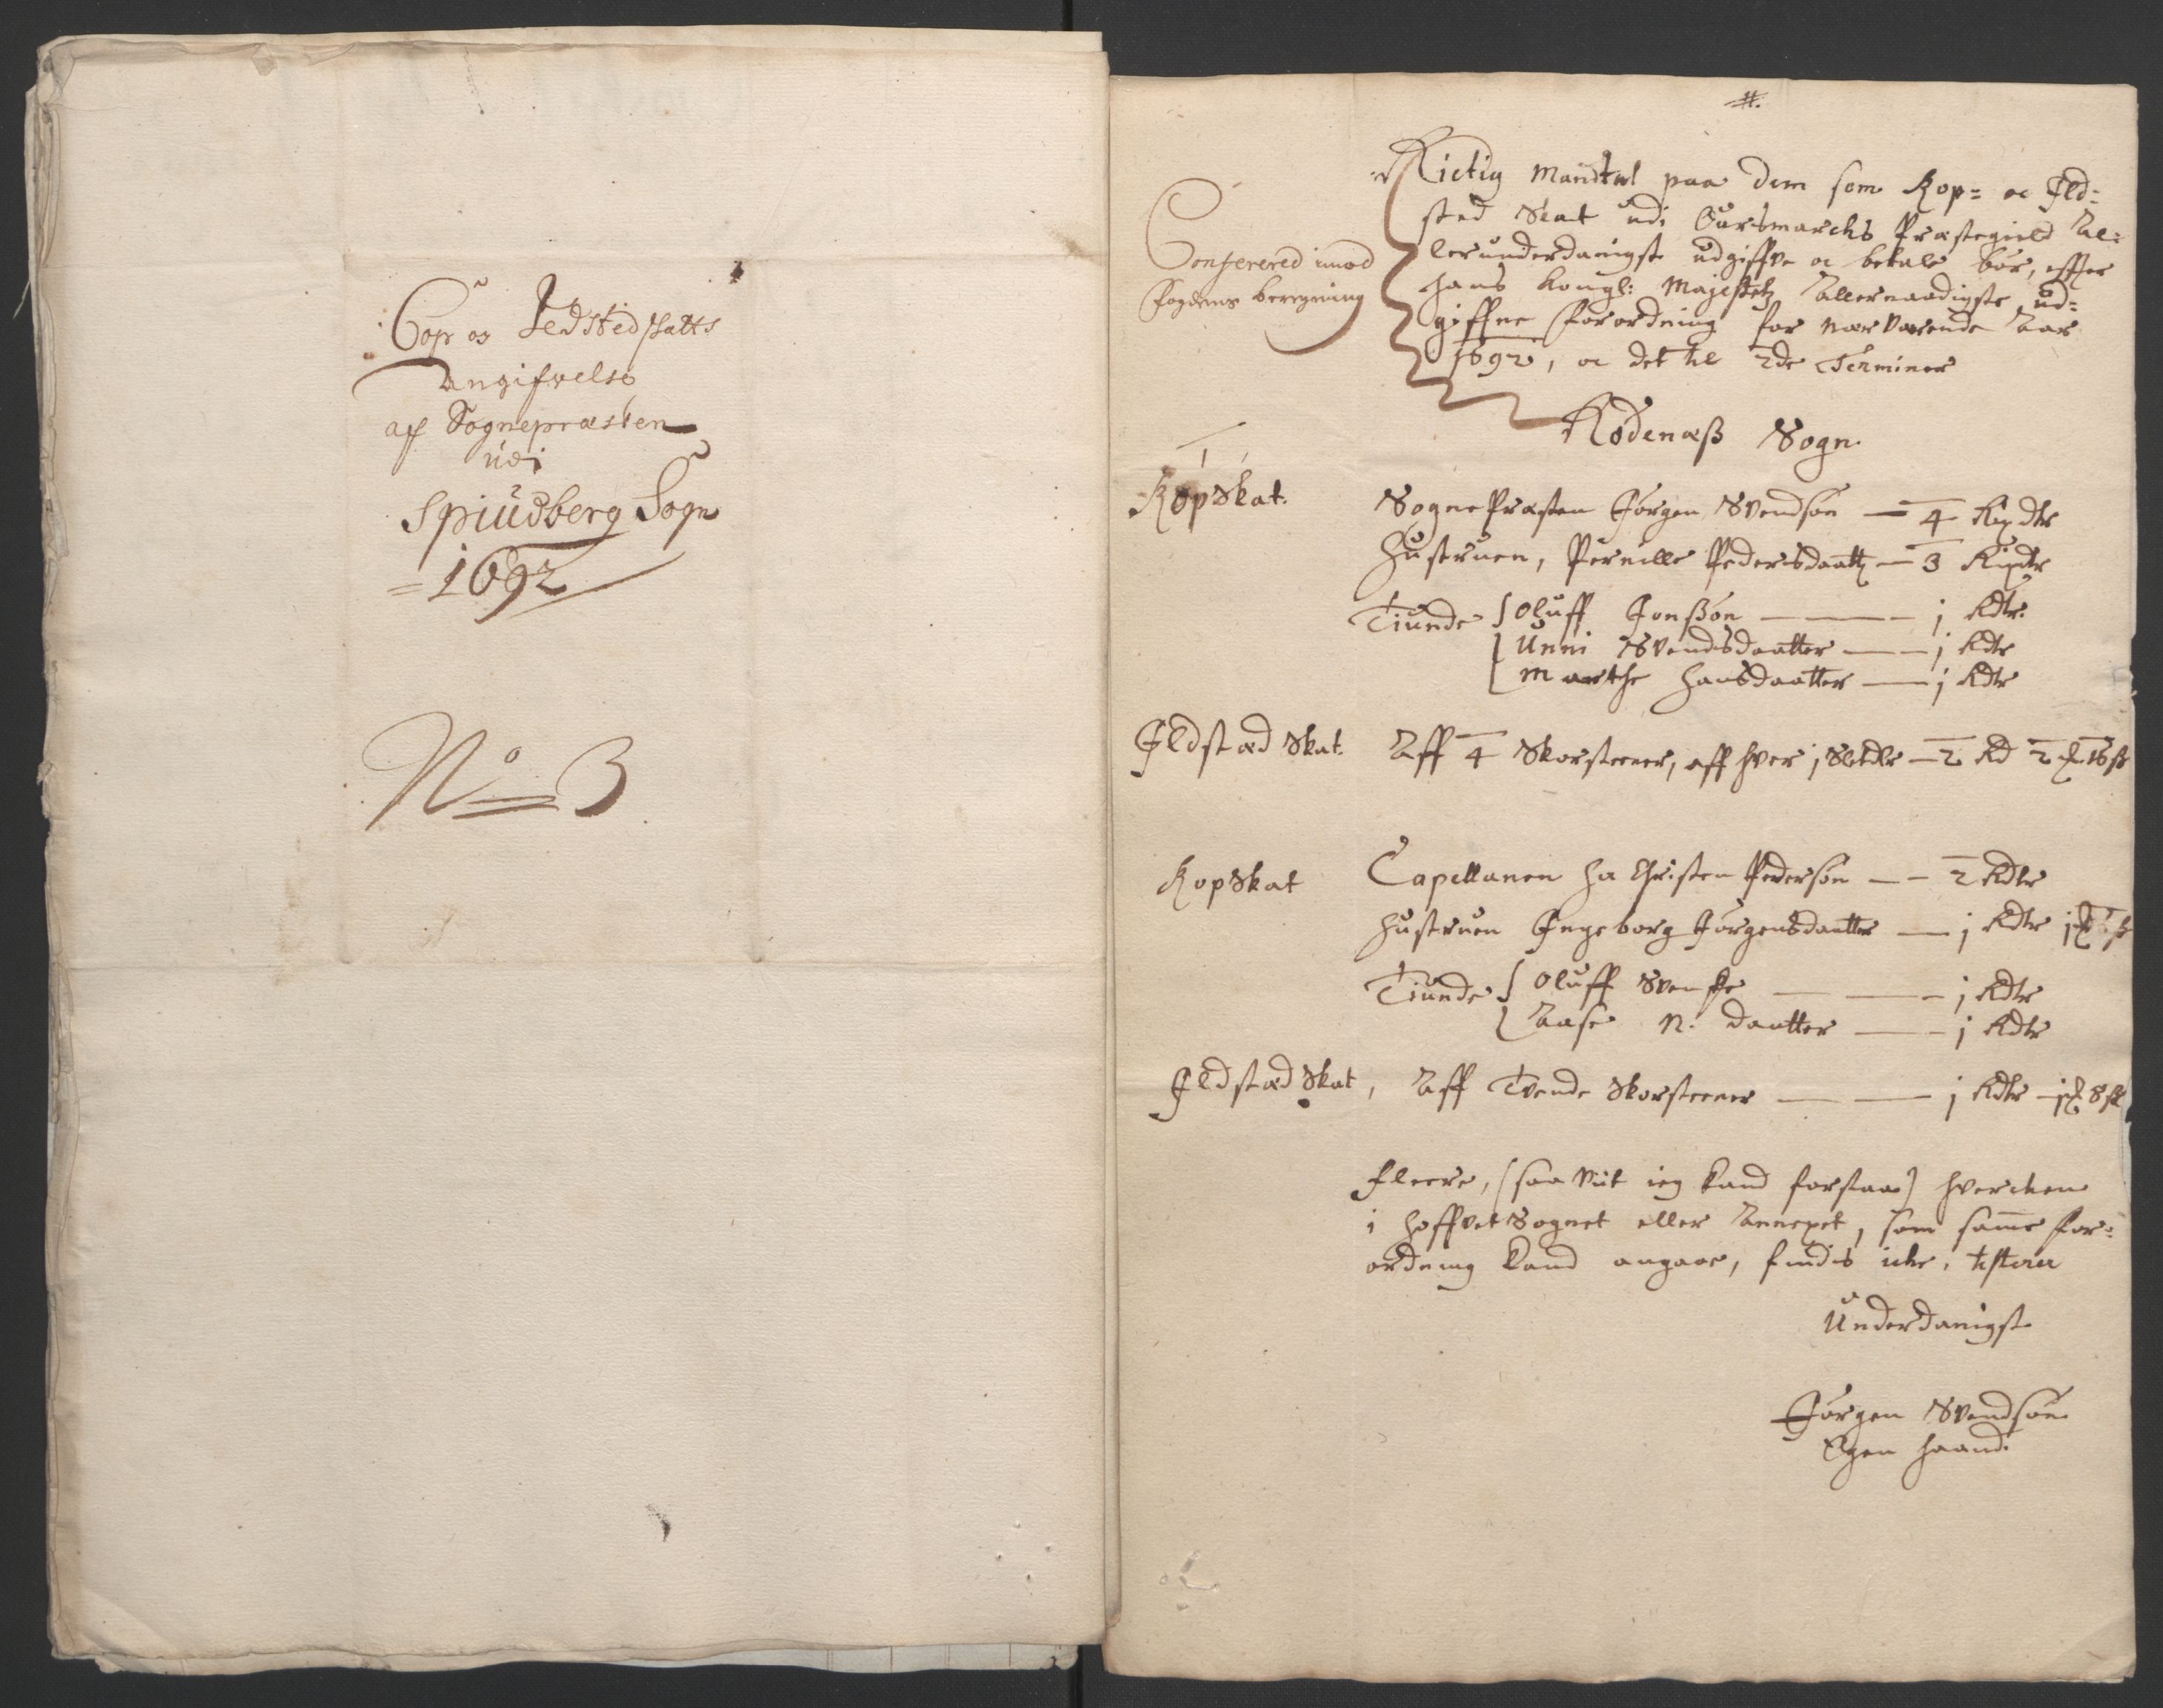 Cop og Jedsted skatts
angifvelse
aff Sognepræsten
udi
Spiudberg Sogn
1692
No 3
Conferered imod
fogdens beregning
Rictig Mandtal paa dem som Kop= oc Ild=
sted Skat udi Ourismarchs Præstegield Al=
lerunderdanigst udgiffve oc betale bør, effter
hans Kongl: Majestetz Allernaadigste ud=
giffne forordning for nærværende Aar
1692, oc det til 2de Terminer
Rødenæss Sogn
Kopskat. SognePræsten Jørgen Svendsøn — 4 Rixdlr
Hustruen, Pernille Pedersdaatt — 3 Rixdlr
Tiunde Oluff Jonssøn — j Rdlr
Unni Svendsdaatter — j Rdlr
Marthe Hansdaatter — j Rdlr
Ildstæd Skat. Aff 4 Skorsteener, aff hver j Sletdlr — 2 Rd 2 16 sk
Kopskat Capellanen Hr Christen Pedersøn — 2 Rdlr
Hustruen Ingeborg Jørgensdaatter — j Rdlr
Tiunde Oluff Svenske — j Rdlr
Aase N. daatter — j Rdlr
Ildstæd Skat, Aff Tvende Skorsteener — j Rdlr j 8 sk
Fleere, (saa vit ieg kand forstaae) hverchen
i HoffvetSognet eller Annexet, som samme for=
ordning kand angaae, findis icke, testerer
Underdanigst
Jørgen Svendsøn
Egen haand.